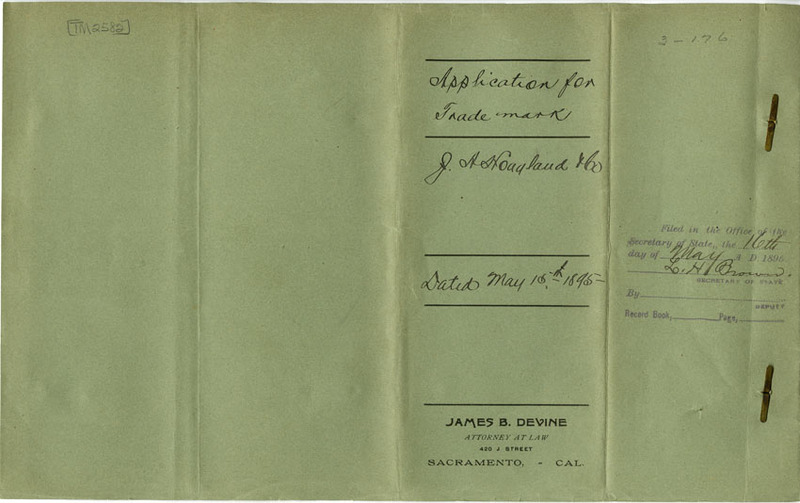 [TM2582]
3-176
Application for
Trade-mark
J. A Hoagland & Co
Dated May 15th 1895
JAMES B. DEVINE
ATTORNEY AT LAW
420 J STREET
SACRAMENTO, - CAL.
Filed in the Office of the
Secretary of State, the 16th
day of May A D 189
L. H. Brown.
SECRETARY OF STATE
By
DEPUTY
Record Book, Page,